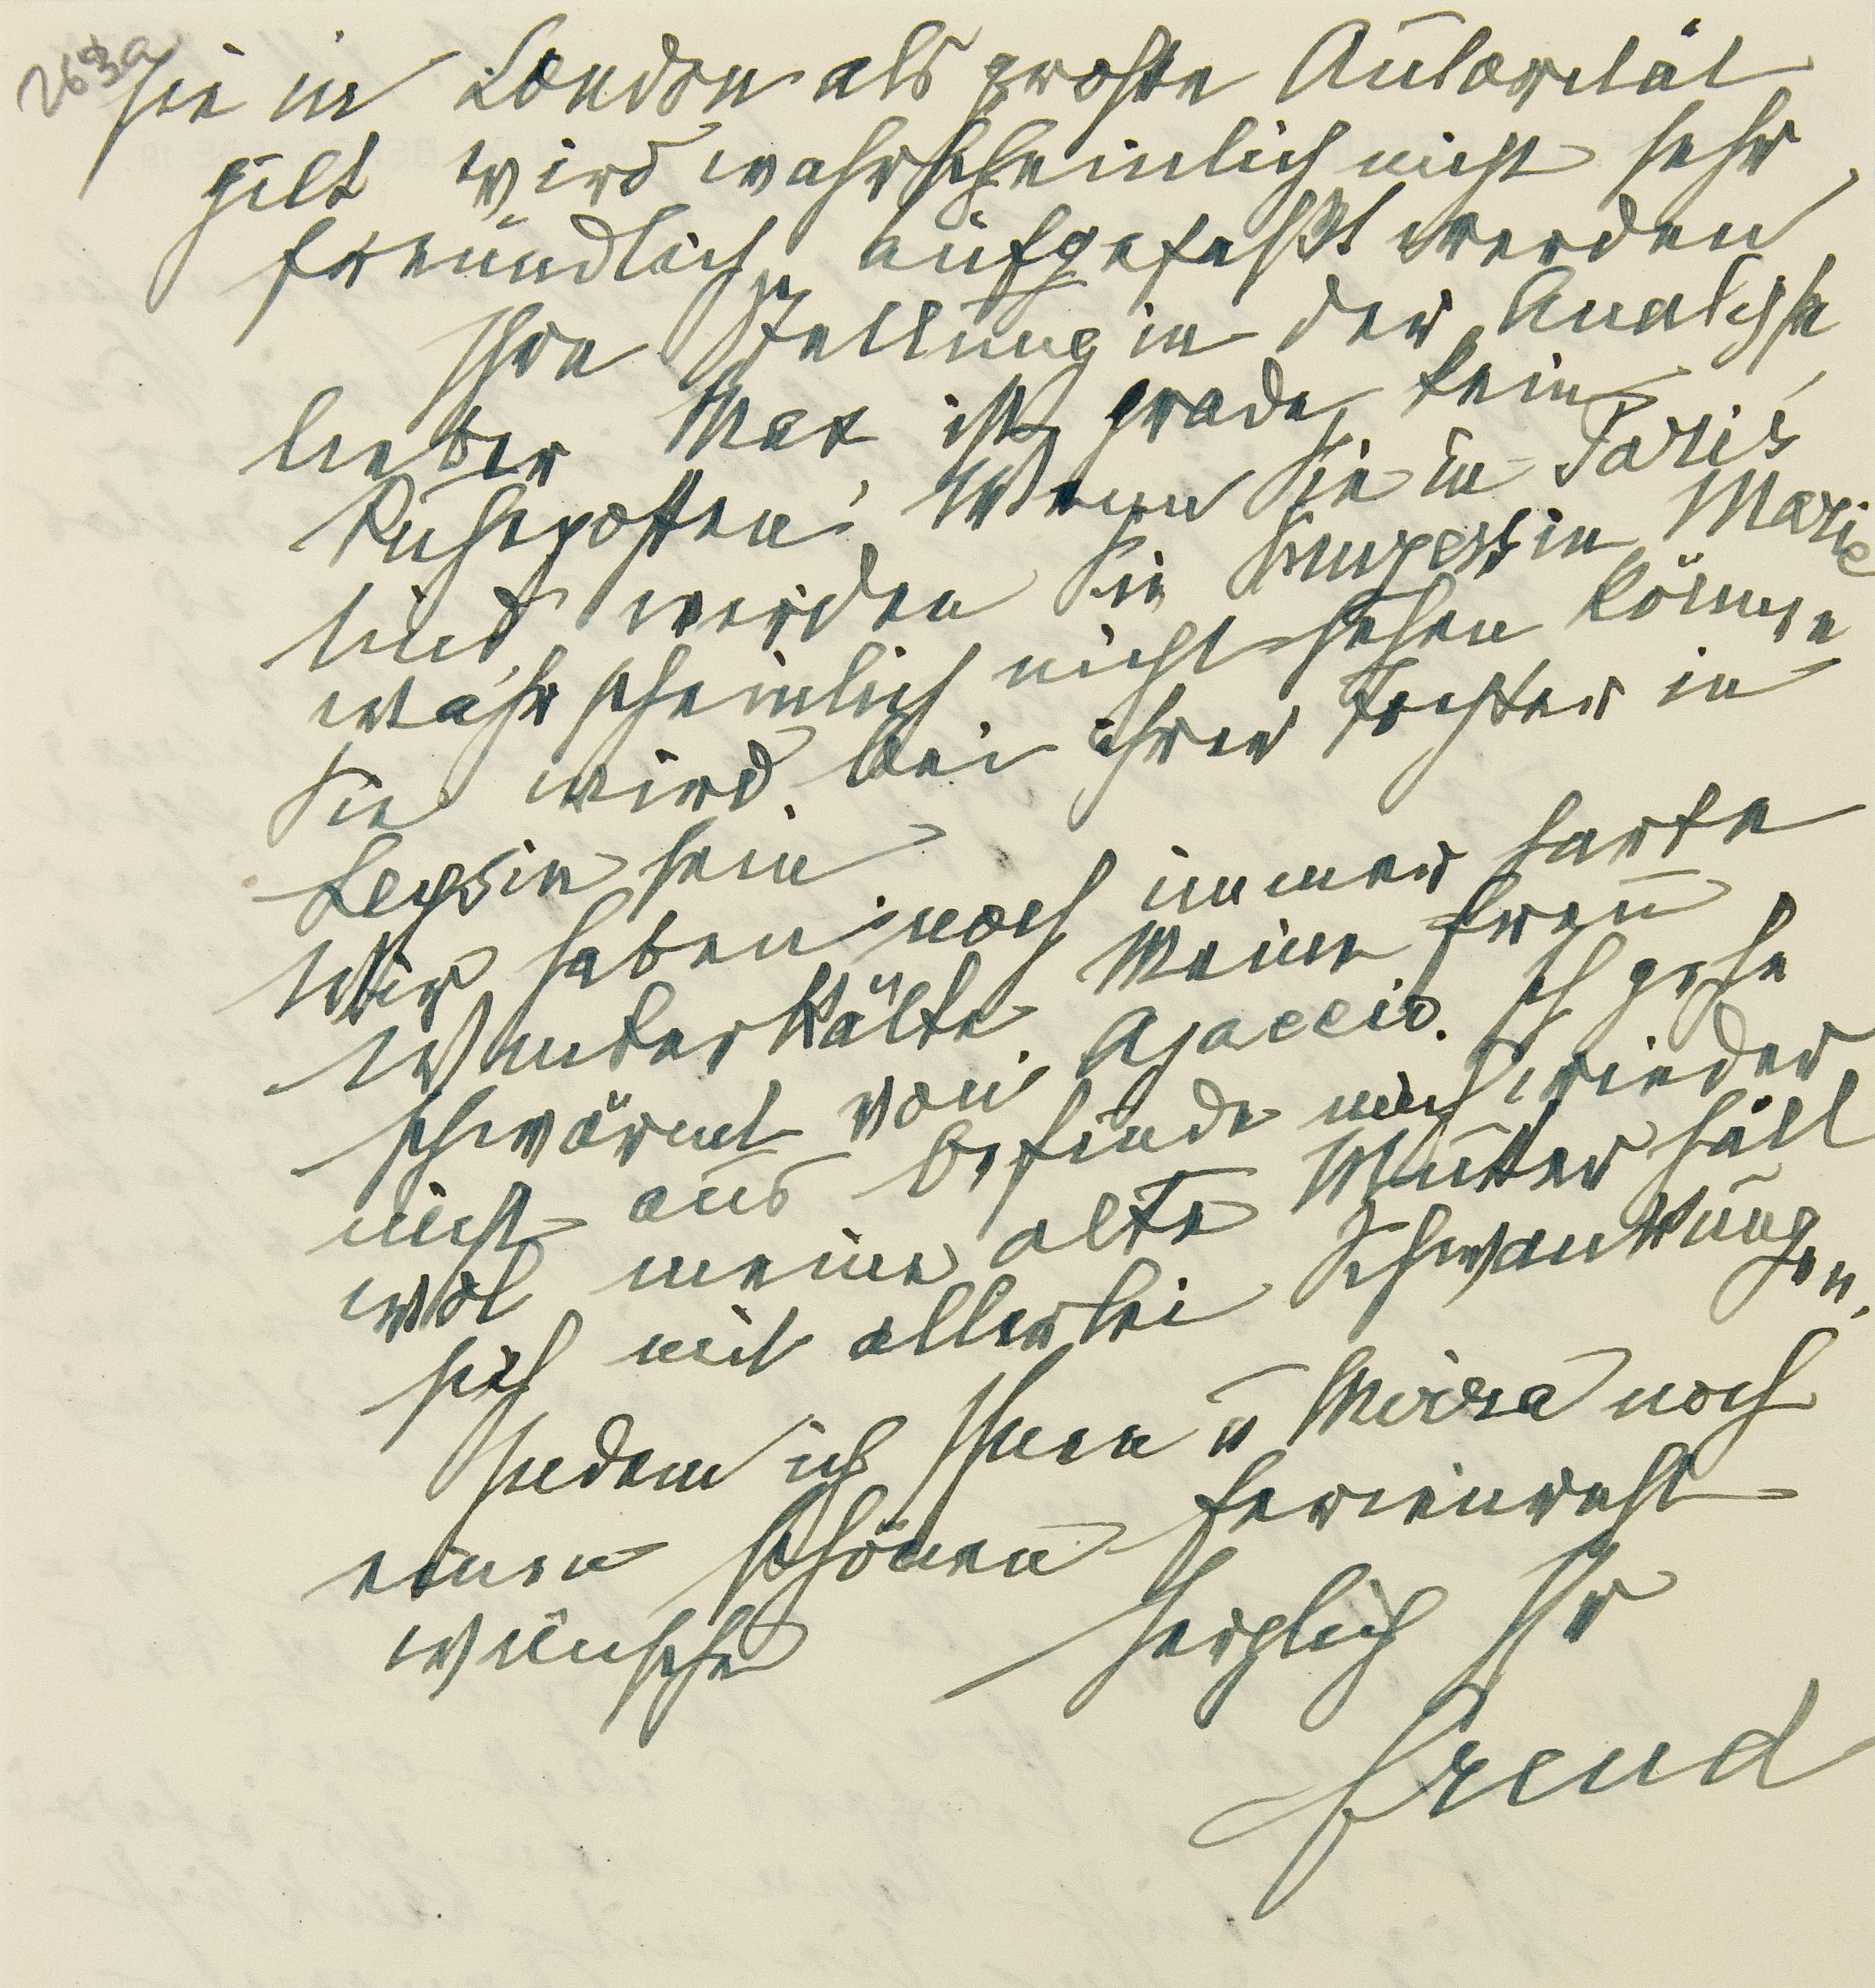 263a
sie in London als große Autorität
gilt wird wahrscheinlich nicht sehr
freundlich aufgefaßt werden
Ihre Stellung in der Analyse,
lieber Max ist grade kein
Ruheposten. Wenn Sie in Paris
sind, werden Sie Prinzessin Marie
wahrscheinlich nicht sehen können
Sie wird bei ihrer Tochter in
Leysin sein
Wir haben noch immer harte
Winterkälte. Meine Frau
schwärmt von Ajaccio. Ich gehe
nicht aus befinde mich wieder
wol meine alte Mutter hält
sich mit allerlei Schwankungen.
Indem ich Ihnen u Mirra noch
einen schönen Ferienrest
wünsche
herzlich Ihr
Freud